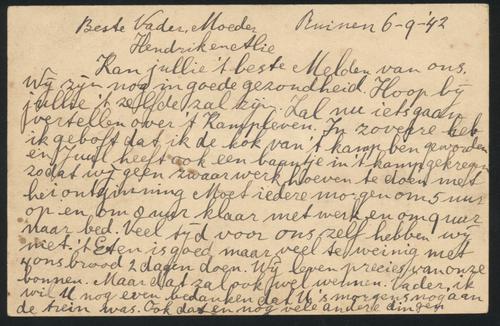 Beste Vader, Moeder Ruinen 6-9-'42
Hendrik en Alie
Kan jullie 't beste Melden van ons.
Wij zijn nog in goede gezondheid. Hoop bij
jullie 't zelfde zal zijn. Zal nu iets gaan
vertellen over 't Kampleven. In zoverre heb
ik geboft dat ik de kok van 't kamp ben geworden
en Juul heeft ook een baantje in 't kamp gekregen
zodat wij geen zwaar werk hoeven te doen met
hei ontginning Moet iedere morgen om 5 uur
op en om 8 uur klaar met werk en om 9 uur
naar bed. Veel tyd voor ons zelf hebben wij
niet 't Eten is goed maar veel te weinig met
ons brood 2 dagen doen. Wij leven precies van onze
bonnen. Maar dat zal ook wel wennen. Vader, ik
wil U nog even bedanken dat U 's morgens nog aan
de trein was. Ook dat en nog vele andere dingen